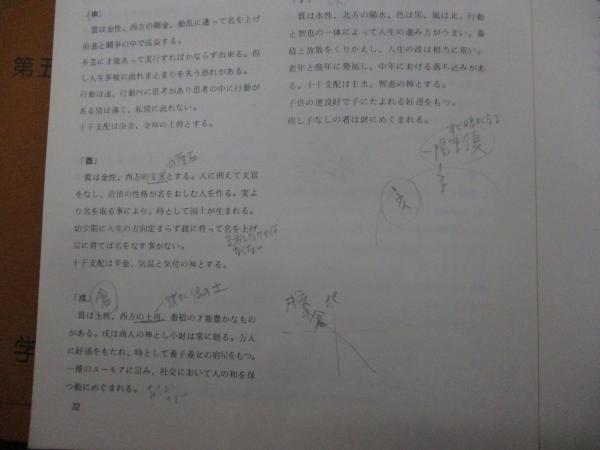 「申」
質は金性、西方の剛金、動乱に逢って名を上げ
前進と闘争の中で成長する。
多芸に才能あって実行すればかならず出来る。但
し人生多岐に流れまとまりを失う恐れがある。
行動は速、行動内に思考があり思考の中に行動が
ある情は薄く、私情に流れない。
十干支配は庚金、金神の主帥とする。
「酉」
の宝石
質は金性、西方の宝器とする。人に例えて文官
をなし、直情の性格が名をおしむ人を作る。実よ
り名を取る事により、時として国士が生まれる。
幼少期に人生の方向定まらず貧に育って名を上げ
富に育てば名をなす事がない。
十干支配は辛金、気品と気位の神とする。
「戌」
倉
質は土性、西方の土用、蓄積の才能豊かなもの
がある。戌は商人の神とし小財は常に廻る。万人
に好感をもたれ、時として養子養女の宿星をもつ。
一種のユーモアに富み、社交において人の和を保
つ能にめぐまれる。
32
質は水性、北方の陽水、色は黒、風は北、行動
と智恵の一体によって人生の進み方がうまい。蓄
積と放散をくりかえし、人生の波は相当に荒い。
若年と晩年に発福し、中年における落ち込みがあ
る。十干支配は壬水、智恵の神とする。
子供の運良好で子にたよれる好運をもつ。
但し子なしの者は財にめぐまれる。
子
亥
北
第五
学